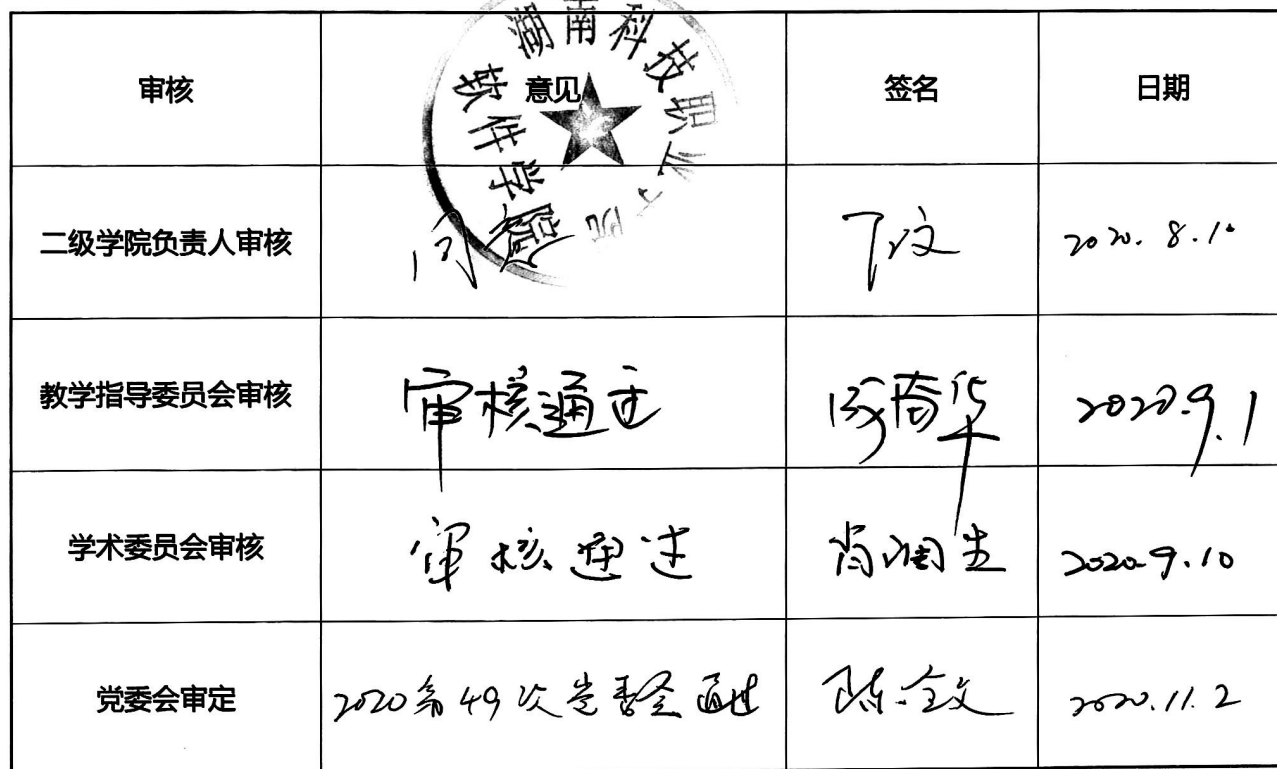 湖南科技职业学院
软件学院
审核 意见 签名 日期
二级学院负责人审核 同意 丁文 2020.8.10
教学指导委员会审核 审核通过 2020.9.1
学术委员会审核 审核通过 2020.9.10
党委会审定 2020第49次党委会通过 2020.11.2